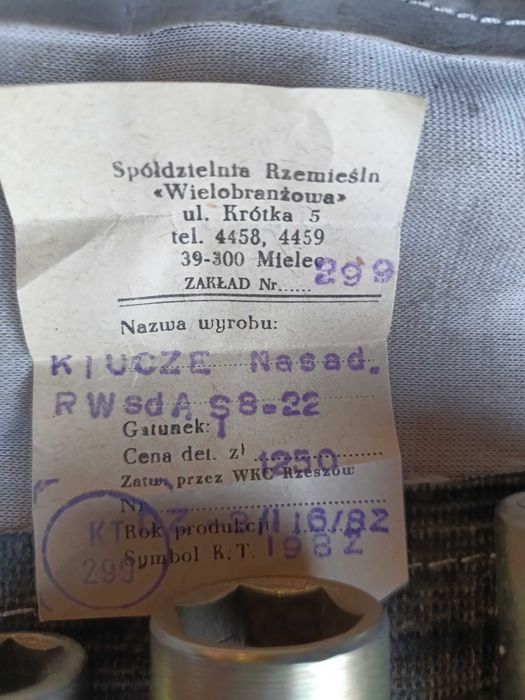 Spółdzielnia Rzemieśln
«Wielobranżowa»
ul. Krótka 5
tel. 4458, 4459
39-300 Mielec
ZAKŁAD Nr...... 299
Nazwa wyrobu:
KlUCZE Nasad.
RWsdA S8-22
Gatunek: I
Cena det. zł 1250
Zatw. przez WKC Rzeszów
Nr
Rok produkcji /116/82
Symbol K.T. 1982
KT
299